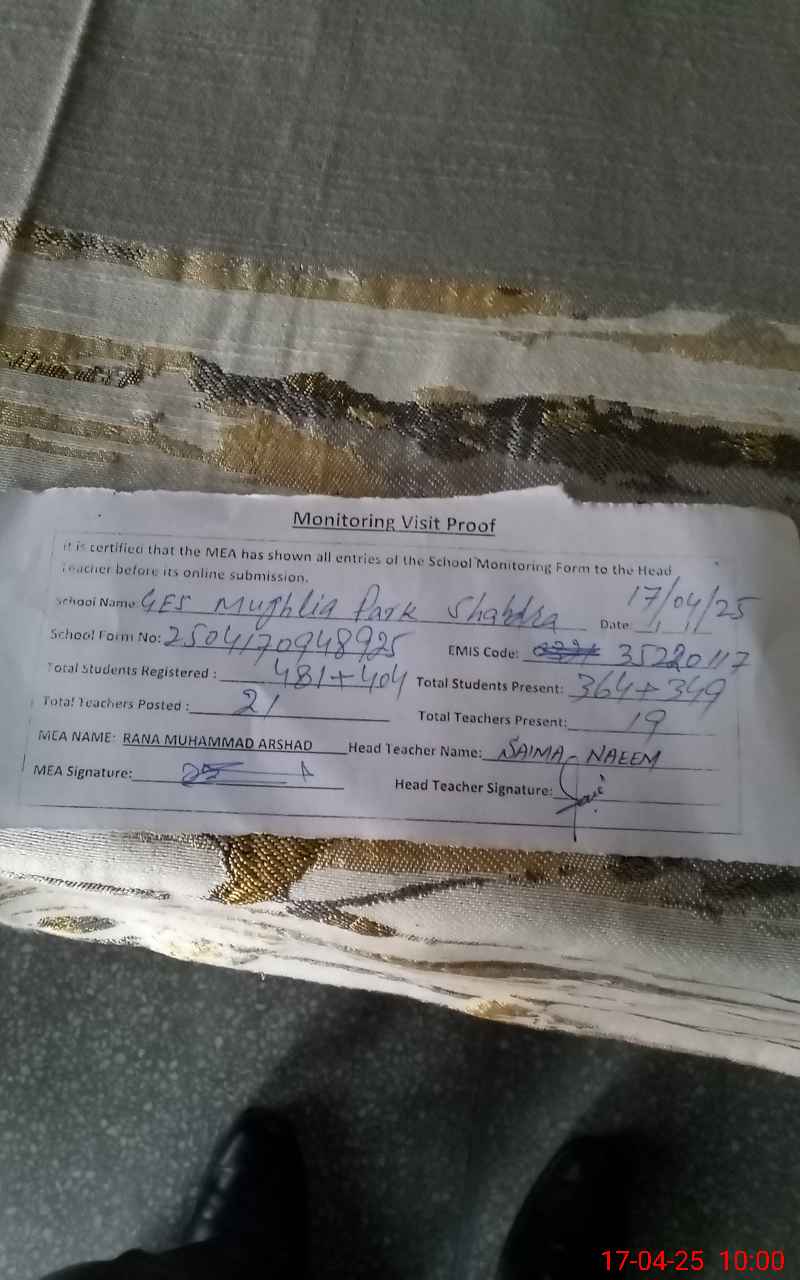 Monitoring Visit Proof
it is certified that the MEA has shown all entries of the School Monitoring Form to the Head
Teacher before its online submission.
School Name: GES Mughlia Park Shahdra Date: 17/04/25
School Form No: 2504170948925 EMIS Code: 35220117
Total Students Registered : 481+404 Total Students Present: 364+349
Total Teachers Posted : 21 Total Teachers Present: 19
MEA NAME: RANA MUHAMMAD ARSHAD Head Teacher Name: SAIMA NAEEM
MEA Signature: Head Teacher Signature:
17-04-25 10:00